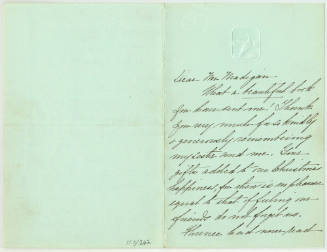 Dear Mr. Madigan.
What a beautiful book
you have sent me! Thank
you very much for so kindly
& generously remembering
my sister and me. Your
gifts added to our Christmas
happiness, for there is no pleasure
equal to that of feeling our
friends do not forget us.
had never read